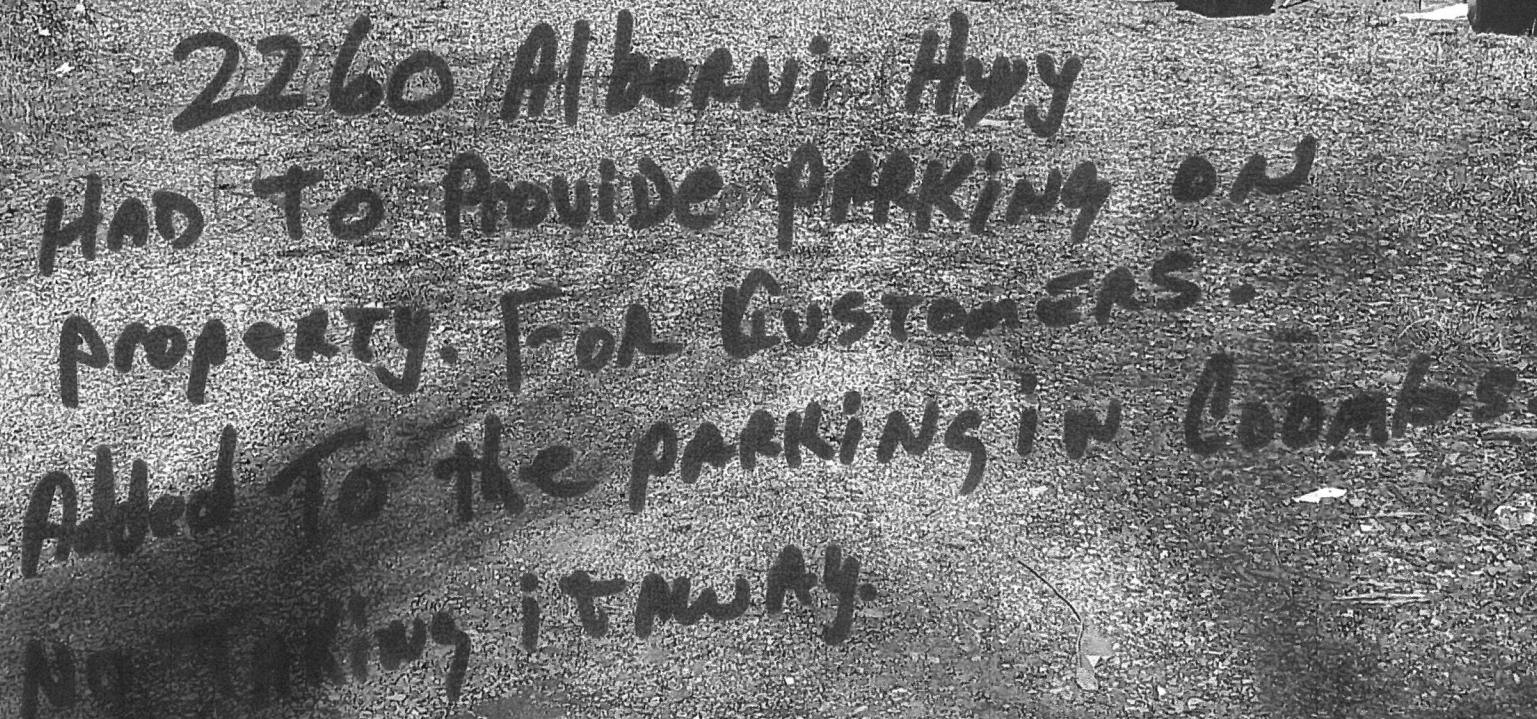 2260 Alberni Hwy
HAD To ProviDe PARKiNg oN
property. For CusTomERS.
Added To the pARKiNg iN Coombs
No TAKiNg iT AwAy.